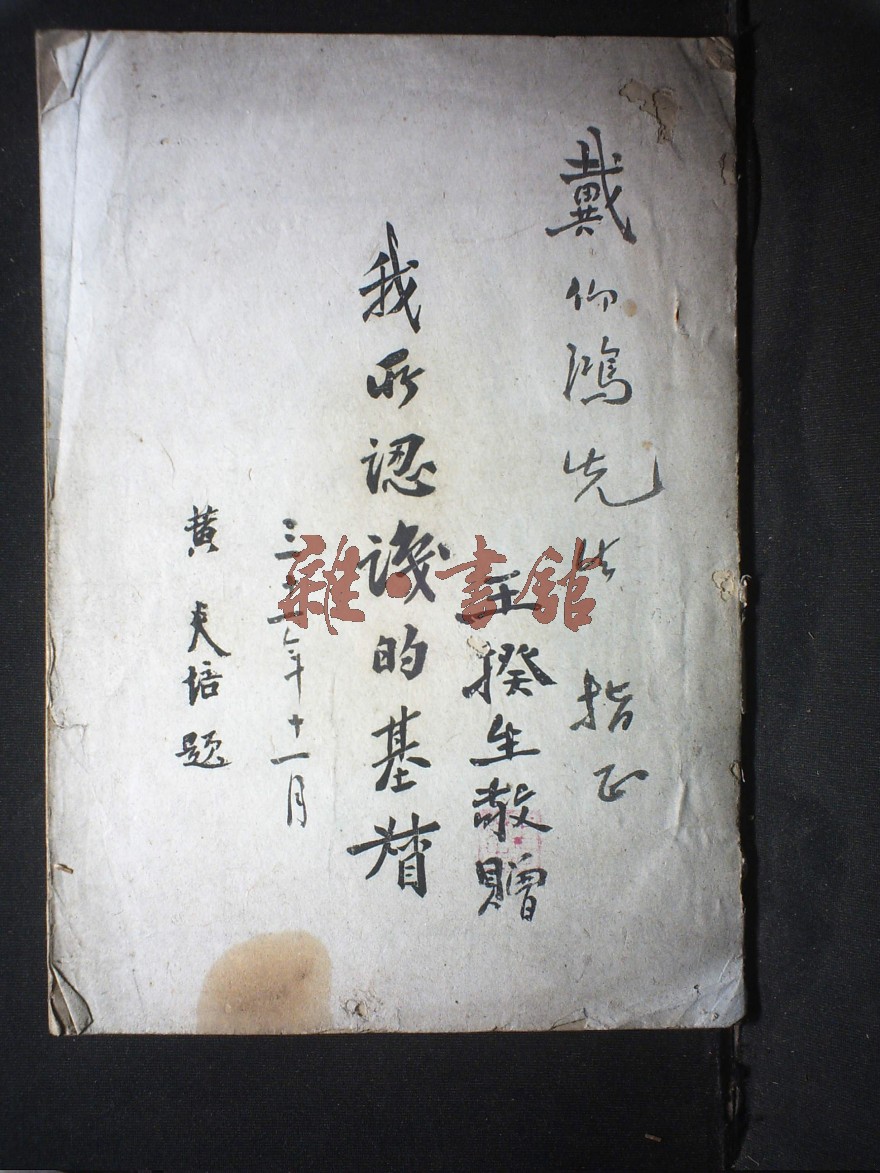 戴仰鴻先生指正
王揆生敬贈
我所認識的基督
三年十一月
黄炎培題
雜·書館